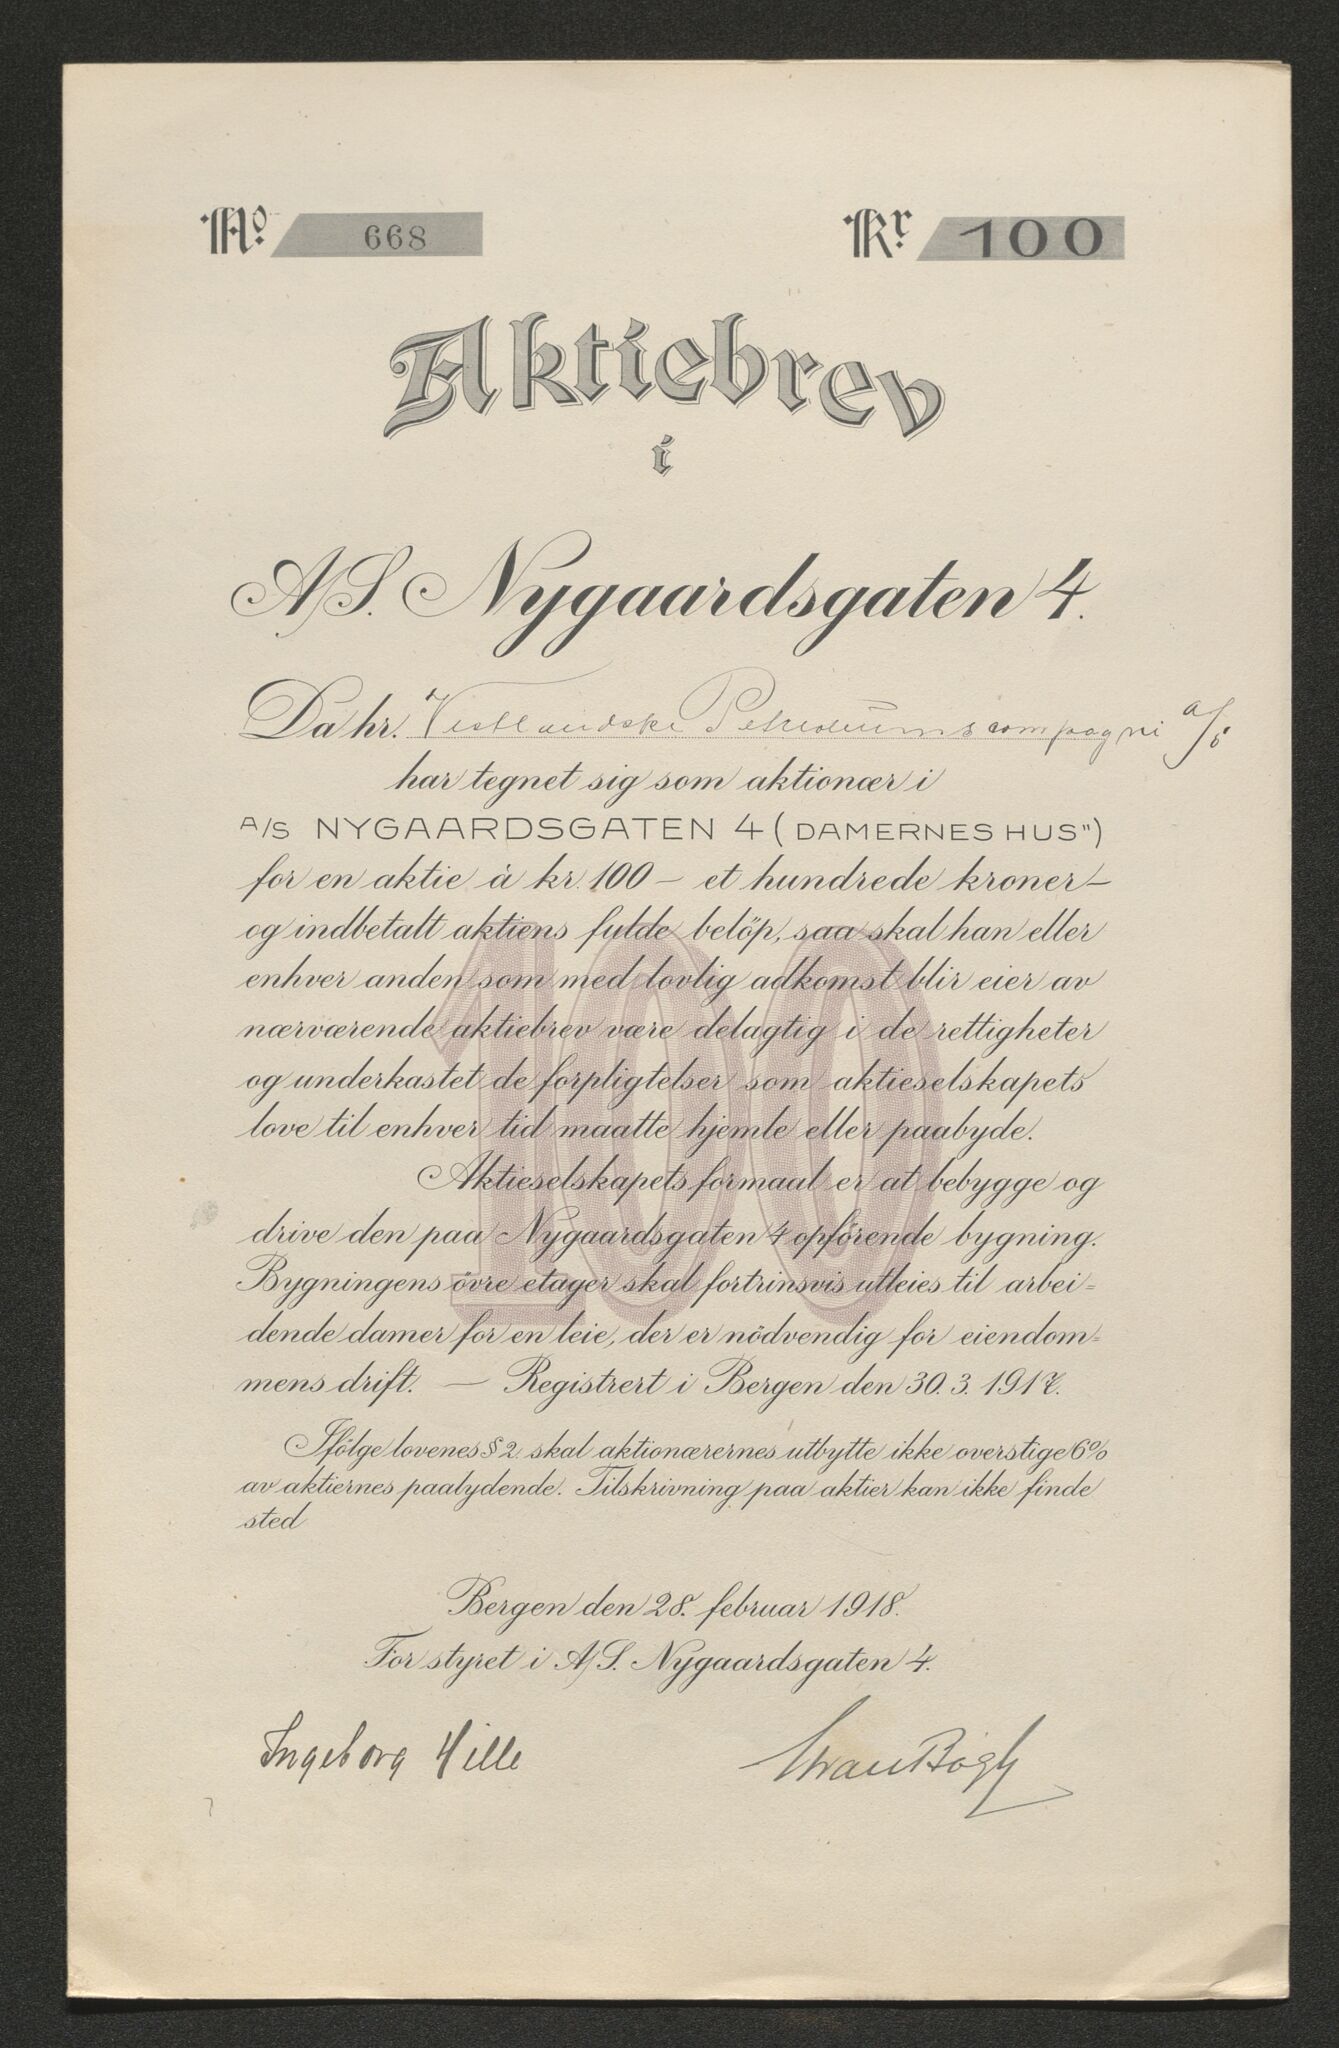 No. 668 Kr. 100
Aktiebrev
i
A/S. Nygaardsgaten 4.
Da hr. Vestlandske Petroleumscompagni a/s
har tegnet sig som aktionær i
A/S NYGAARDSGATEN 4 (DAMERNES HUS")
for en aktie à kr. 100 — et hundrede kroner —
og indbetalt aktiens fulde beløp, saa skal han eller
enhver anden som med lovlig adkomst blir eier av
nærværende aktiebrev være delagtig i de rettigheter
og underkastet de forpligtelser som aktieselskapets
love til enhver tid maatte hjemle eller paabyde.
Aktieselskapets formaal er at bebygge og
drive den paa Nygaardsgaten 4 opförende bygning.
Bygningens övre etager skal fortrinsvis utleies til arbei=
dende damer for en leie, der er nödvendig for eiendom=
mens drift. — Registrert i Bergen den 30. 3. 1917.
Ifölge lovenes § 2. skal aktionærernes utbytte ikke overstige 6%
av aktiernes paalydende. Tilskrivning paa aktier kan ikke finde
sted
Bergen den 28. februar 1918.
For styret i A/S. Nygaardsgaten 4.
Ingeborg Hille
100